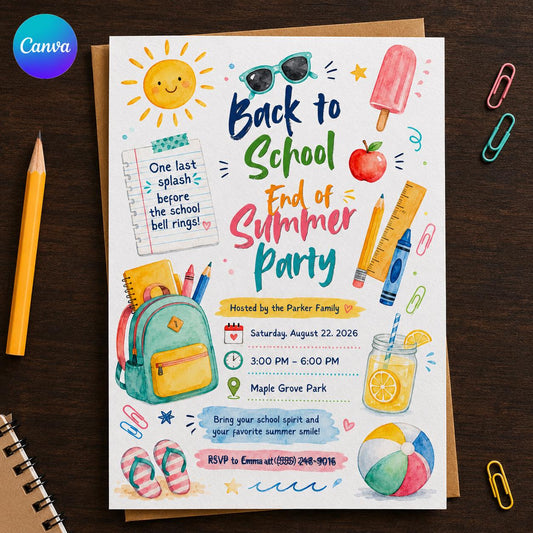 Canva
Back to
School
End of
Summer
Party
One last
splash
before
the school
bell rings!
Hosted by the Parker Family
Saturday, August 22. 2026
3:00 PM – 6:00 PM
Maple Grove Park
Bring your school spirit and
your favorite summer smile!
RSVP to Emma at